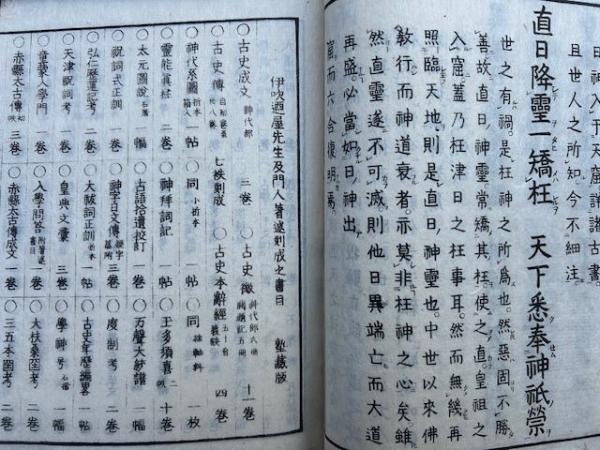 日神入于天窟詳諸古書
且世人之所知今不細注
直日降靈一矯枉　天下悉奉神祇祭
世之有禍是枉神之所為也然惡固不勝
善故直日神靈常矯其枉使之直皇祖之
入窟蓋乃枉津日之枉事耳然而無幾再
照臨天地則是直日神靈也中世以來佛
教行而神道衰者亦莫非枉神之心矣雖
然直靈遂不可滅則他日異端亡而大道
再盛必當如日神出
窟而六合復明焉
伊吹迺屋先生及門人著述刻成之書目　塾藏版
○古史成文　神代部　三卷　○古史徵　十一卷
○古史傳　七帙刻成　○古史本辭經　四卷
○神代系圖　折本箱入　一帖　○同　小折本　一帖　○同　一枚
○靈能真柱　二卷　○神拜詞記　一帖　○玉多須喜　十卷
○太元圖說　石摺　一幅　○古語拾遺校訂　一卷　○万聲大統譜　一幅
○祝詞式正訓　一卷　○大祓詞正訓　折本　一帖　○古史年歷編畧　一卷
○弘仁歷運記考　二卷　○神字日文傳　三卷　○度制考　二卷
○天津祝詞考　一卷　○皇典文彙　三卷　○學神号　石摺　一幅
○童蒙入學門　一卷　○入學問答　一卷　○大扶桑國考　二卷
○赤縣太古傳　三卷　○赤縣太古傳成文　一卷　○三五本國考　二卷